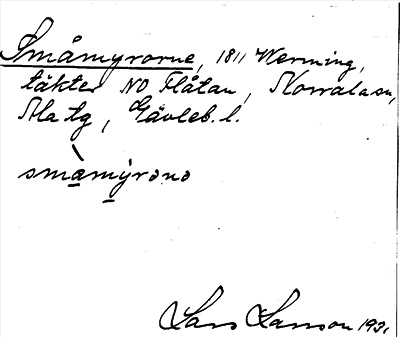 Småmyrorne, 1811 Werming,
täkter NO Flåtan, Norrala sn,
Ala tg, Gävleb. l.
småmỳrono
Lars Larsson 1931